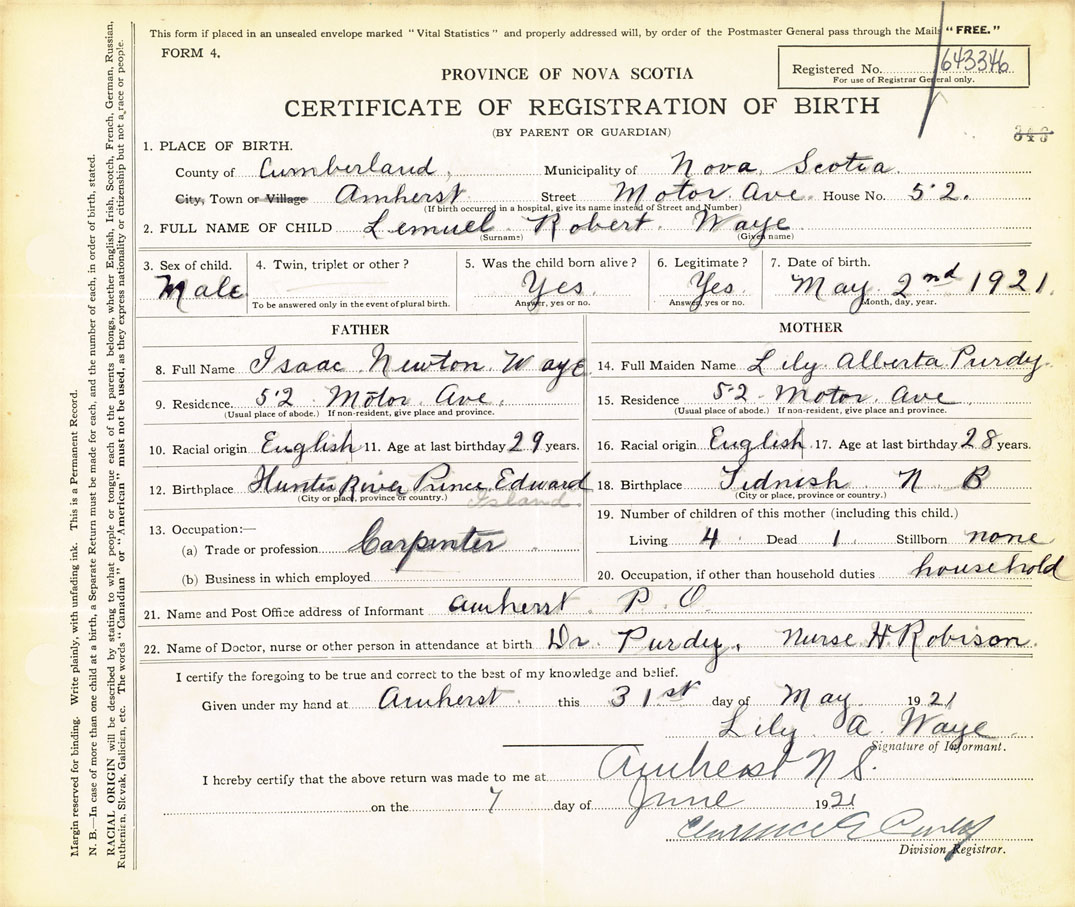 This form if placed in an unsealed envelope marked "Vital Statistics" and properly addressed will, by order of the Postmaster General pass through the Mails "FREE."
FORM 4.
Registered No. 643346
For use of Registrar General only.
PROVINCE OF NOVA SCOTIA
CERTIFICATE OF REGISTRATION OF BIRTH
(BY PARENT OR GUARDIAN)
343
1. PLACE OF BIRTH.
County of Cumberland, Municipality of Nova Scotia
City, Town or Village Amherst Street Motor Ave. House No. 52.
(If birth occurred in a hospital, give its name instead of Street and Number)
2. FULL NAME OF CHILD Lemuel Robert Waye
(Surname) (Given name)
3. Sex of child. 4. Twin, triplet or other? 5. Was the child born alive? 6. Legitimate? 7. Date of birth.
Male Yes Yes. May 2nd 1921.
To be answered only in the event of plural birth. Answer, yes or no. Answer, yes or no. Month, day, year.
FATHER
8. Full Name Isaac Newton Waye
9. Residence. 52 Motor Ave.
(Usual place of abode.) If non-resident, give place and province.
10. Racial origin English 11. Age at last birthday 29 years.
12. Birthplace Hunter River Prince Edward
Island
(City or place, province or country.)
13. Occupation:—
(a) Trade or profession Carpenter
(b) Business in which employed
MOTHER
14. Full Maiden Name Lily Alberta Purdy.
15. Residence 52 Motor Ave
(Usual place of abode.) If non-resident, give place and province.
16. Racial origin English 17. Age at last birthday 28 years.
18. Birthplace Tidnish N B
(City or place, province or country.)
19. Number of children of this mother (including this child.)
Living 4 Dead 1 Stillborn none
20. Occupation, if other than household duties household
21. Name and Post Office address of Informant Amherst. P. O.
22. Name of Doctor, nurse or other person in attendance at birth Dr. Purdy, Nurse H Robison
I certify the foregoing to be true and correct to the best of my knowledge and belief.
Given under my hand at Amherst this 31st day of May 1921
Lily A Waye
Signature of Informant.
I hereby certify that the above return was made to me at Amherst N S.
on the 7 day of June 1921
Clarence
Division Registrar.
Margin reserved for binding. Write plainly, with unfading ink. This is a Permanent Record.
N. B.—In case of more than one child at a birth, a Separate Return must be made for each, and the number of each, in order of birth, stated.
RACIAL ORIGIN will be described by stating to what people or tongue each of the parents belongs, whether English, Irish, Scotch, French, German, Russian,
Ruthenien, Slovak, Galicien, etc. The words "Canadian" or "American" must not be used, as they express nationality or citizenship but not a race or people.